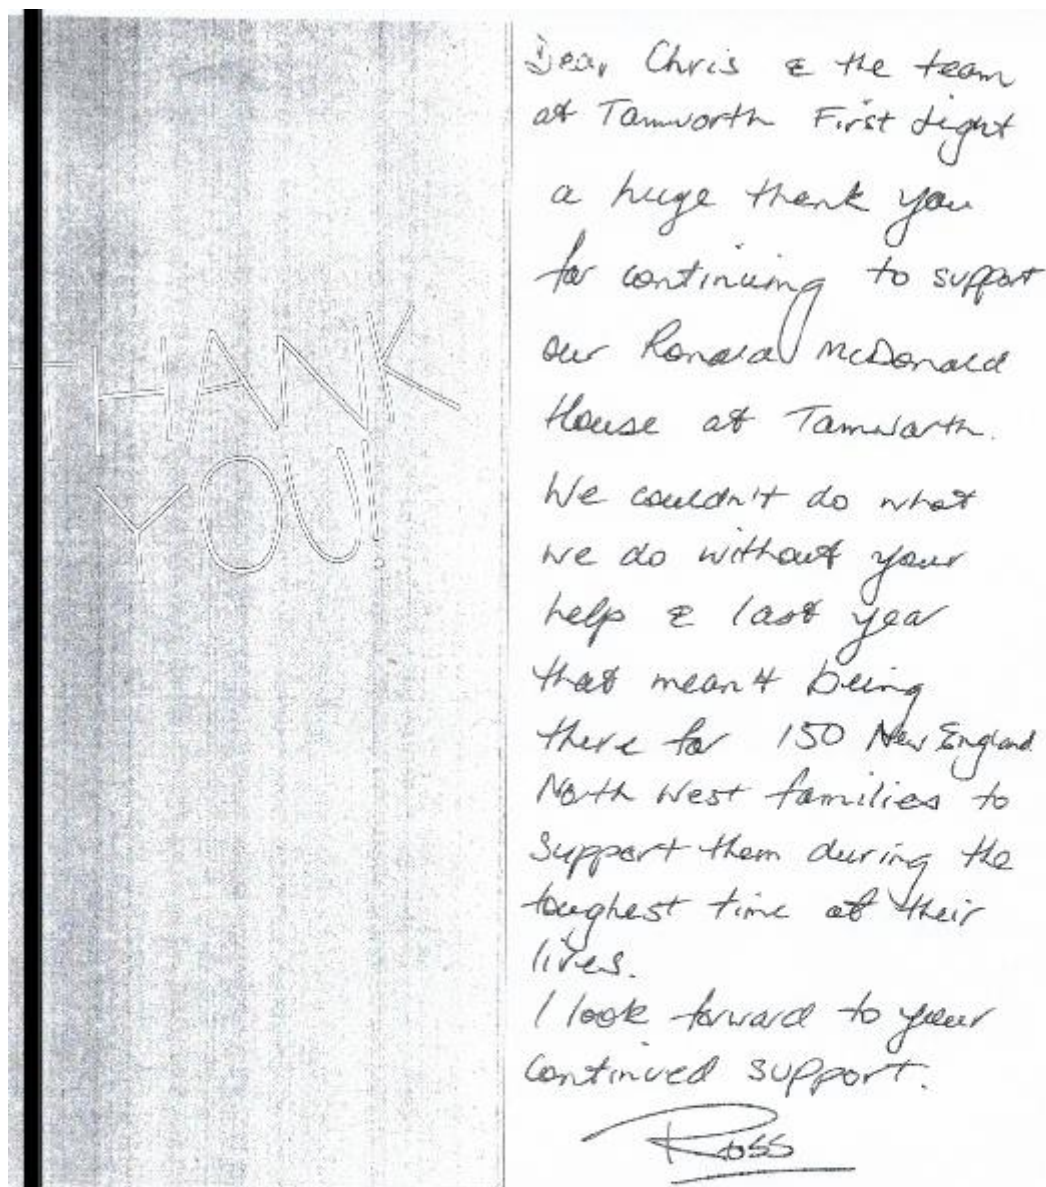 THANK
YOU!
Dear Chris & the team
at Tamworth First Light
a huge thank you
for continuing to support
our Ronald McDonald
House at Tamworth.
We couldn't do what
we do without your
help & last year
that meant being
there for 150 New England
North West families to
support them during the
toughest time of their
lives.
I look forward to your
continued support.
Ross